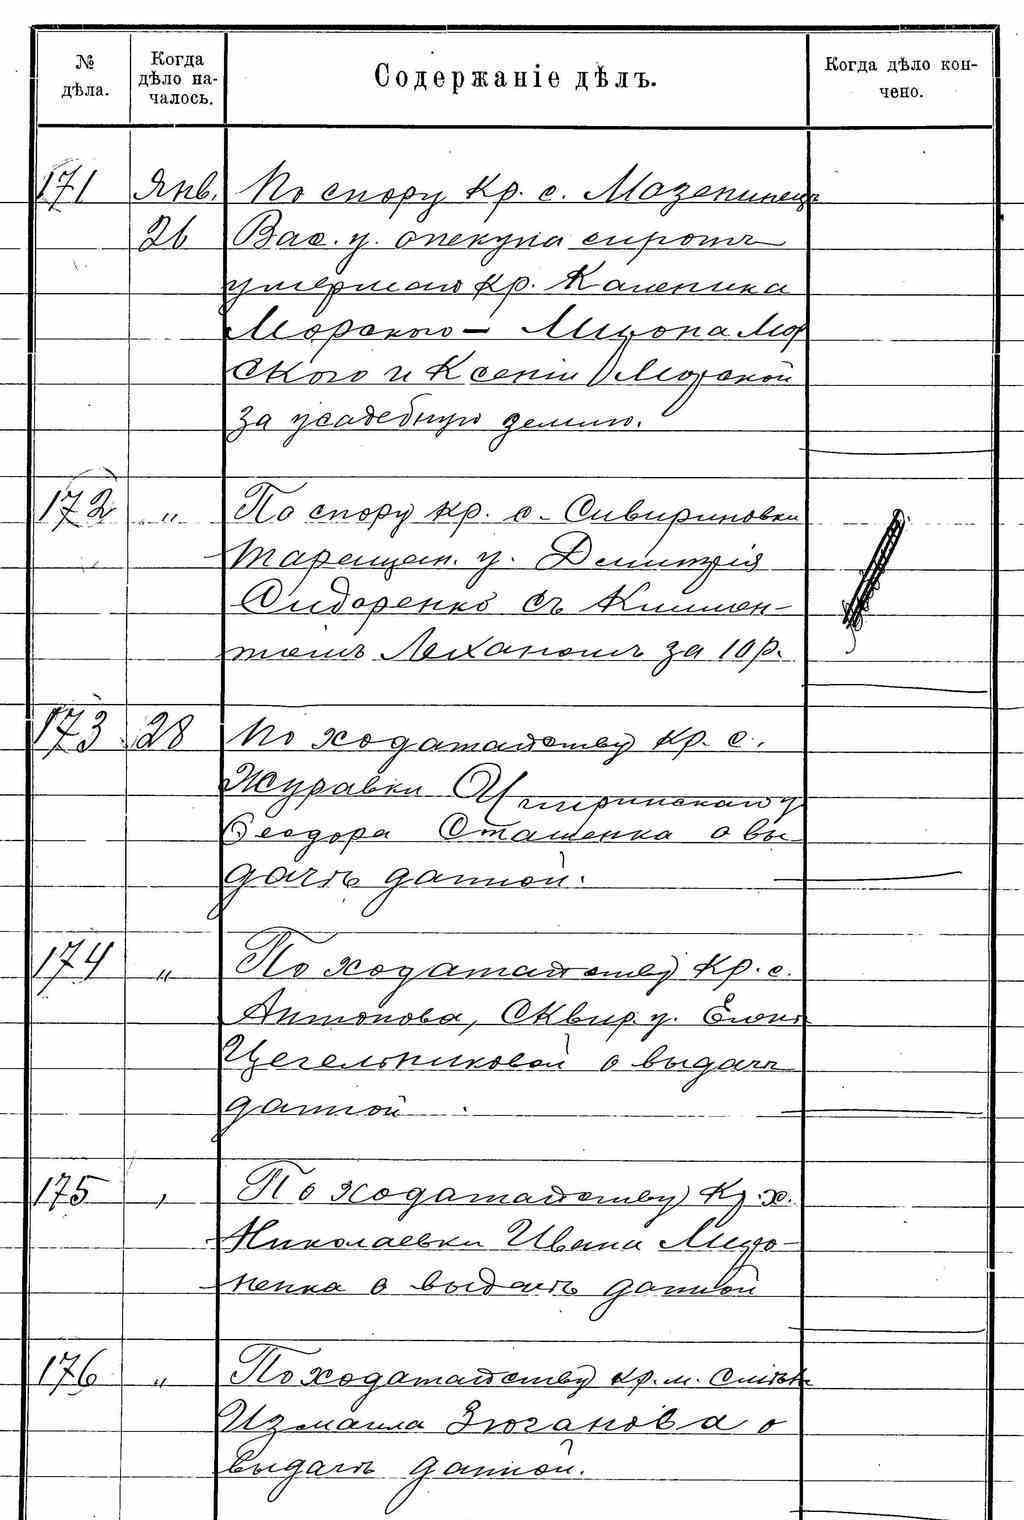 № дѣла.
Когда дѣло началось.
Содержаніе дѣлъ.
Когда дѣло кончено.
171 Янв. По спору кр. с. Мазепинецъ
26 Вас. у. опекуна сиротъ
умершаго кр. Каленика
Морского – Мирона Мор
ского и Ксеніи Морской
за усадебную землю.
172 „ По спору кр. с. Сивириновки
Таращан. у. Дмитрія
Сидоренко съ Климен-
тіемъ Леханомъ за 10 р.
173 28 По ходатайству кр. с.
Журавки Чигиринскаго у
Ѳеодора Сташенка о вы-
дачѣ данной.
174 „ По ходатайству кр. с.
Антонова, Сквир. у. Елены
Цегельниковой о выдачѣ
данной
175 „ По ходатайству кр. х.
Николаевки Ивана Миро-
ненка о выдачѣ данной
176 „ По ходатайству кр. м. Смѣлы
Измаила Зюганова о
выдачѣ данной.